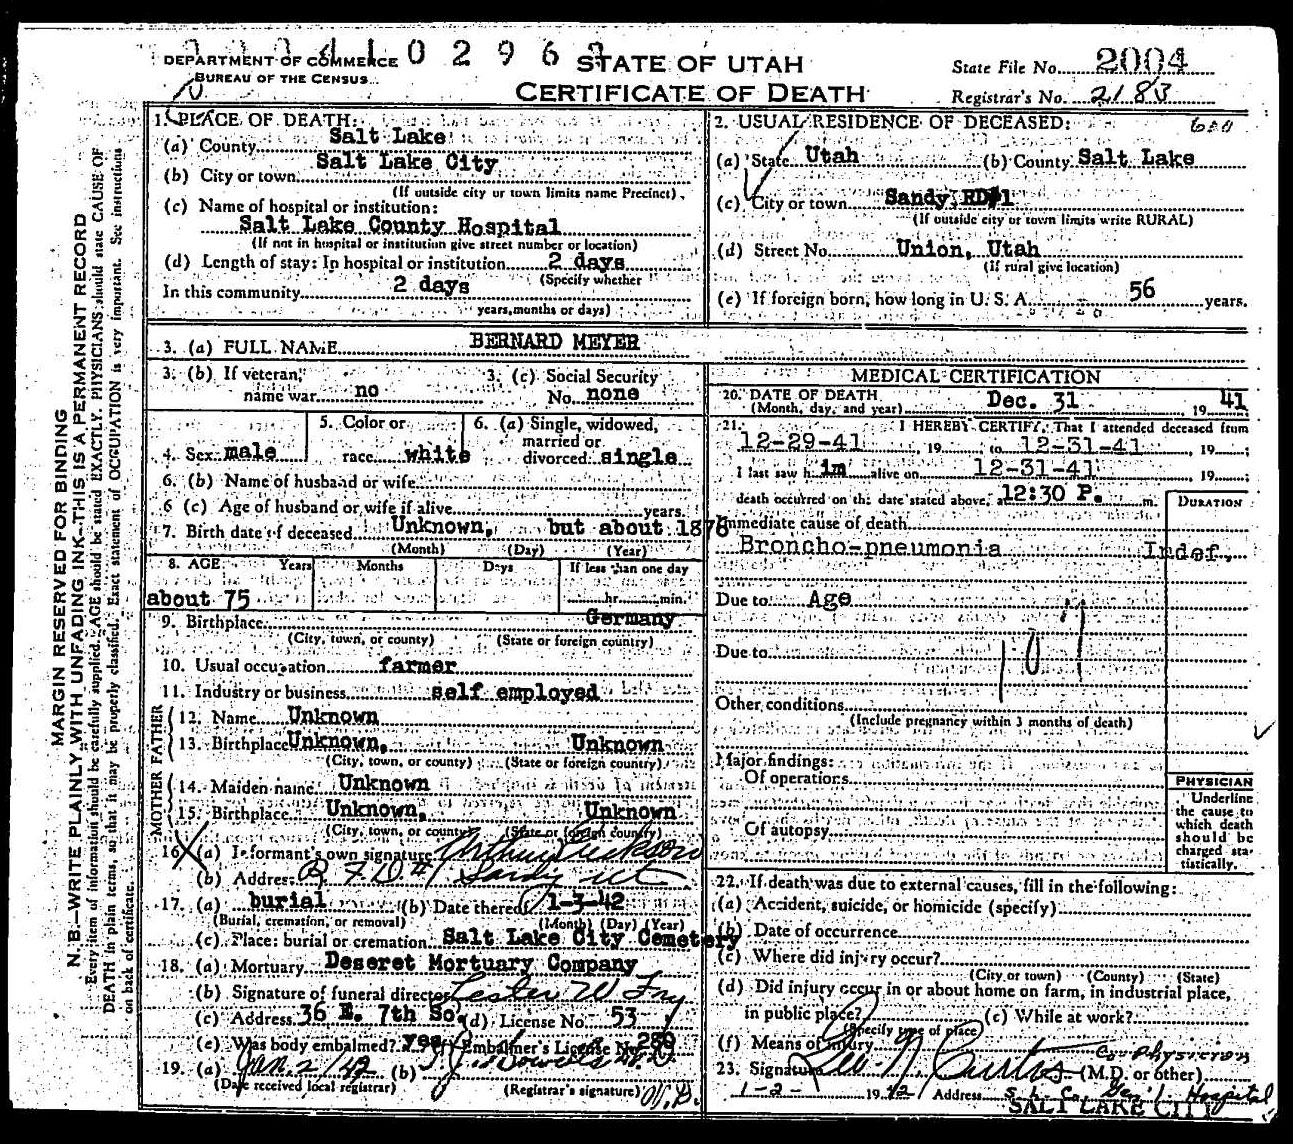 0 2 9 6
DEPARTMENT OF COMMERCE
BUREAU OF THE CENSUS
STATE OF UTAH
CERTIFICATE OF DEATH
State File No. 2004
Registrar's No. 2183
MARGIN RESERVED FOR BINDING
N. B.—WRITE PLAINLY WITH UNFADING INK—THIS IS A PERMANENT RECORD
Every item of information should be carefully supplied. AGE should be stated EXACTLY. PHYSICIANS should state CAUSE OF
DEATH in plain terms, so that it may be properly classified. Exact statement of OCCUPATION is very important. See instructions
on back of certificate.
1. PLACE OF DEATH:
(a) County Salt Lake
(b) City or town Salt Lake City
(If outside city or town limits name Precinct)
(c) Name of hospital or institution:
Salt Lake County Hospital
(If not in hospital or institution give street number or location)
(d) Length of stay: In hospital or institution 2 days
(Specify whether
In this community 2 days
years, months or days)
2. USUAL RESIDENCE OF DECEASED:
(a) State Utah (b) County Salt Lake
(c) City or town Sandy RD#1
(If outside city or town limits write RURAL)
(d) Street No. Union, Utah
(If rural give location)
(e) If foreign born, how long in U. S. A. 56 years.
3. (a) FULL NAME BERNARD MEYER
3. (b) If veteran, name war no
3. (c) Social Security No. none
4. Sex male
5. Color or race white
6. (a) Single, widowed, married or divorced single
6. (b) Name of husband or wife
6 (c) Age of husband or wife if alive years.
7. Birth date of deceased Unknown, but about 1876
(Month) (Day) (Year)
8. AGE Years Months Days If less than one day
about 75 hr. min.
9. Birthplace Germany
(City, town, or county) (State or foreign country)
10. Usual occupation farmer
11. Industry or business self employed
FATHER
12. Name Unknown
13. Birthplace Unknown, Unknown
(City, town, or county) (State or foreign country)
MOTHER
14. Maiden name Unknown
15. Birthplace Unknown, Unknown
(City, town, or county) (State or foreign country)
16. (a) Informant's own signature Arthur Erickson
(b) Address R.F.D #1 Sandy Ut
17. (a) burial (b) Date thereof 1-3-42
(Burial, cremation, or removal) (Month) (Day) (Year)
(c) Place: burial or cremation Salt Lake City Cemetery
18. (a) Mortuary Deseret Mortuary Company
(b) Signature of funeral director Lester W Fry
(c) Address 36 E. 7th So. (d) License No. 53
(e) Was body embalmed? yes Embalmer's License No. 289
19. (a) Jan. 2 / 42 (b)
(Date received local registrar) (Registrar's signature)
MEDICAL CERTIFICATION
20. DATE OF DEATH
(Month, day, and year) Dec. 31 19 41
21. I HEREBY CERTIFY, That I attended deceased from
12-29-41, 19 to 12-31-41, 19 ;
I last saw him alive on 12-31-41, 19 ;
death occurred on the date stated above, 12:30 P. m.
DURATION
Immediate cause of death
Broncho-pneumonia Indef.
Due to Age
107
Due to
Other conditions
(Include pregnancy within 3 months of death)
Major findings:
Of operations
Of autopsy
PHYSICIAN
Underline
the cause to
which death
should be
charged sta-
tistically.
22. If death was due to external causes, fill in the following:
(a) Accident, suicide, or homicide (specify)
(b) Date of occurrence
(c) Where did injury occur?
(City or town) (County) (State)
(d) Did injury occur in or about home on farm, in industrial place,
in public place? (e) While at work?
(Specify type of place)
(f) Means of injury
23. Signature Leo N Curtis Co. Physician (M.D. or other)
1-2- 1942 Address S. L. Co. Gen'l. Hospital
SALT LAKE CITY